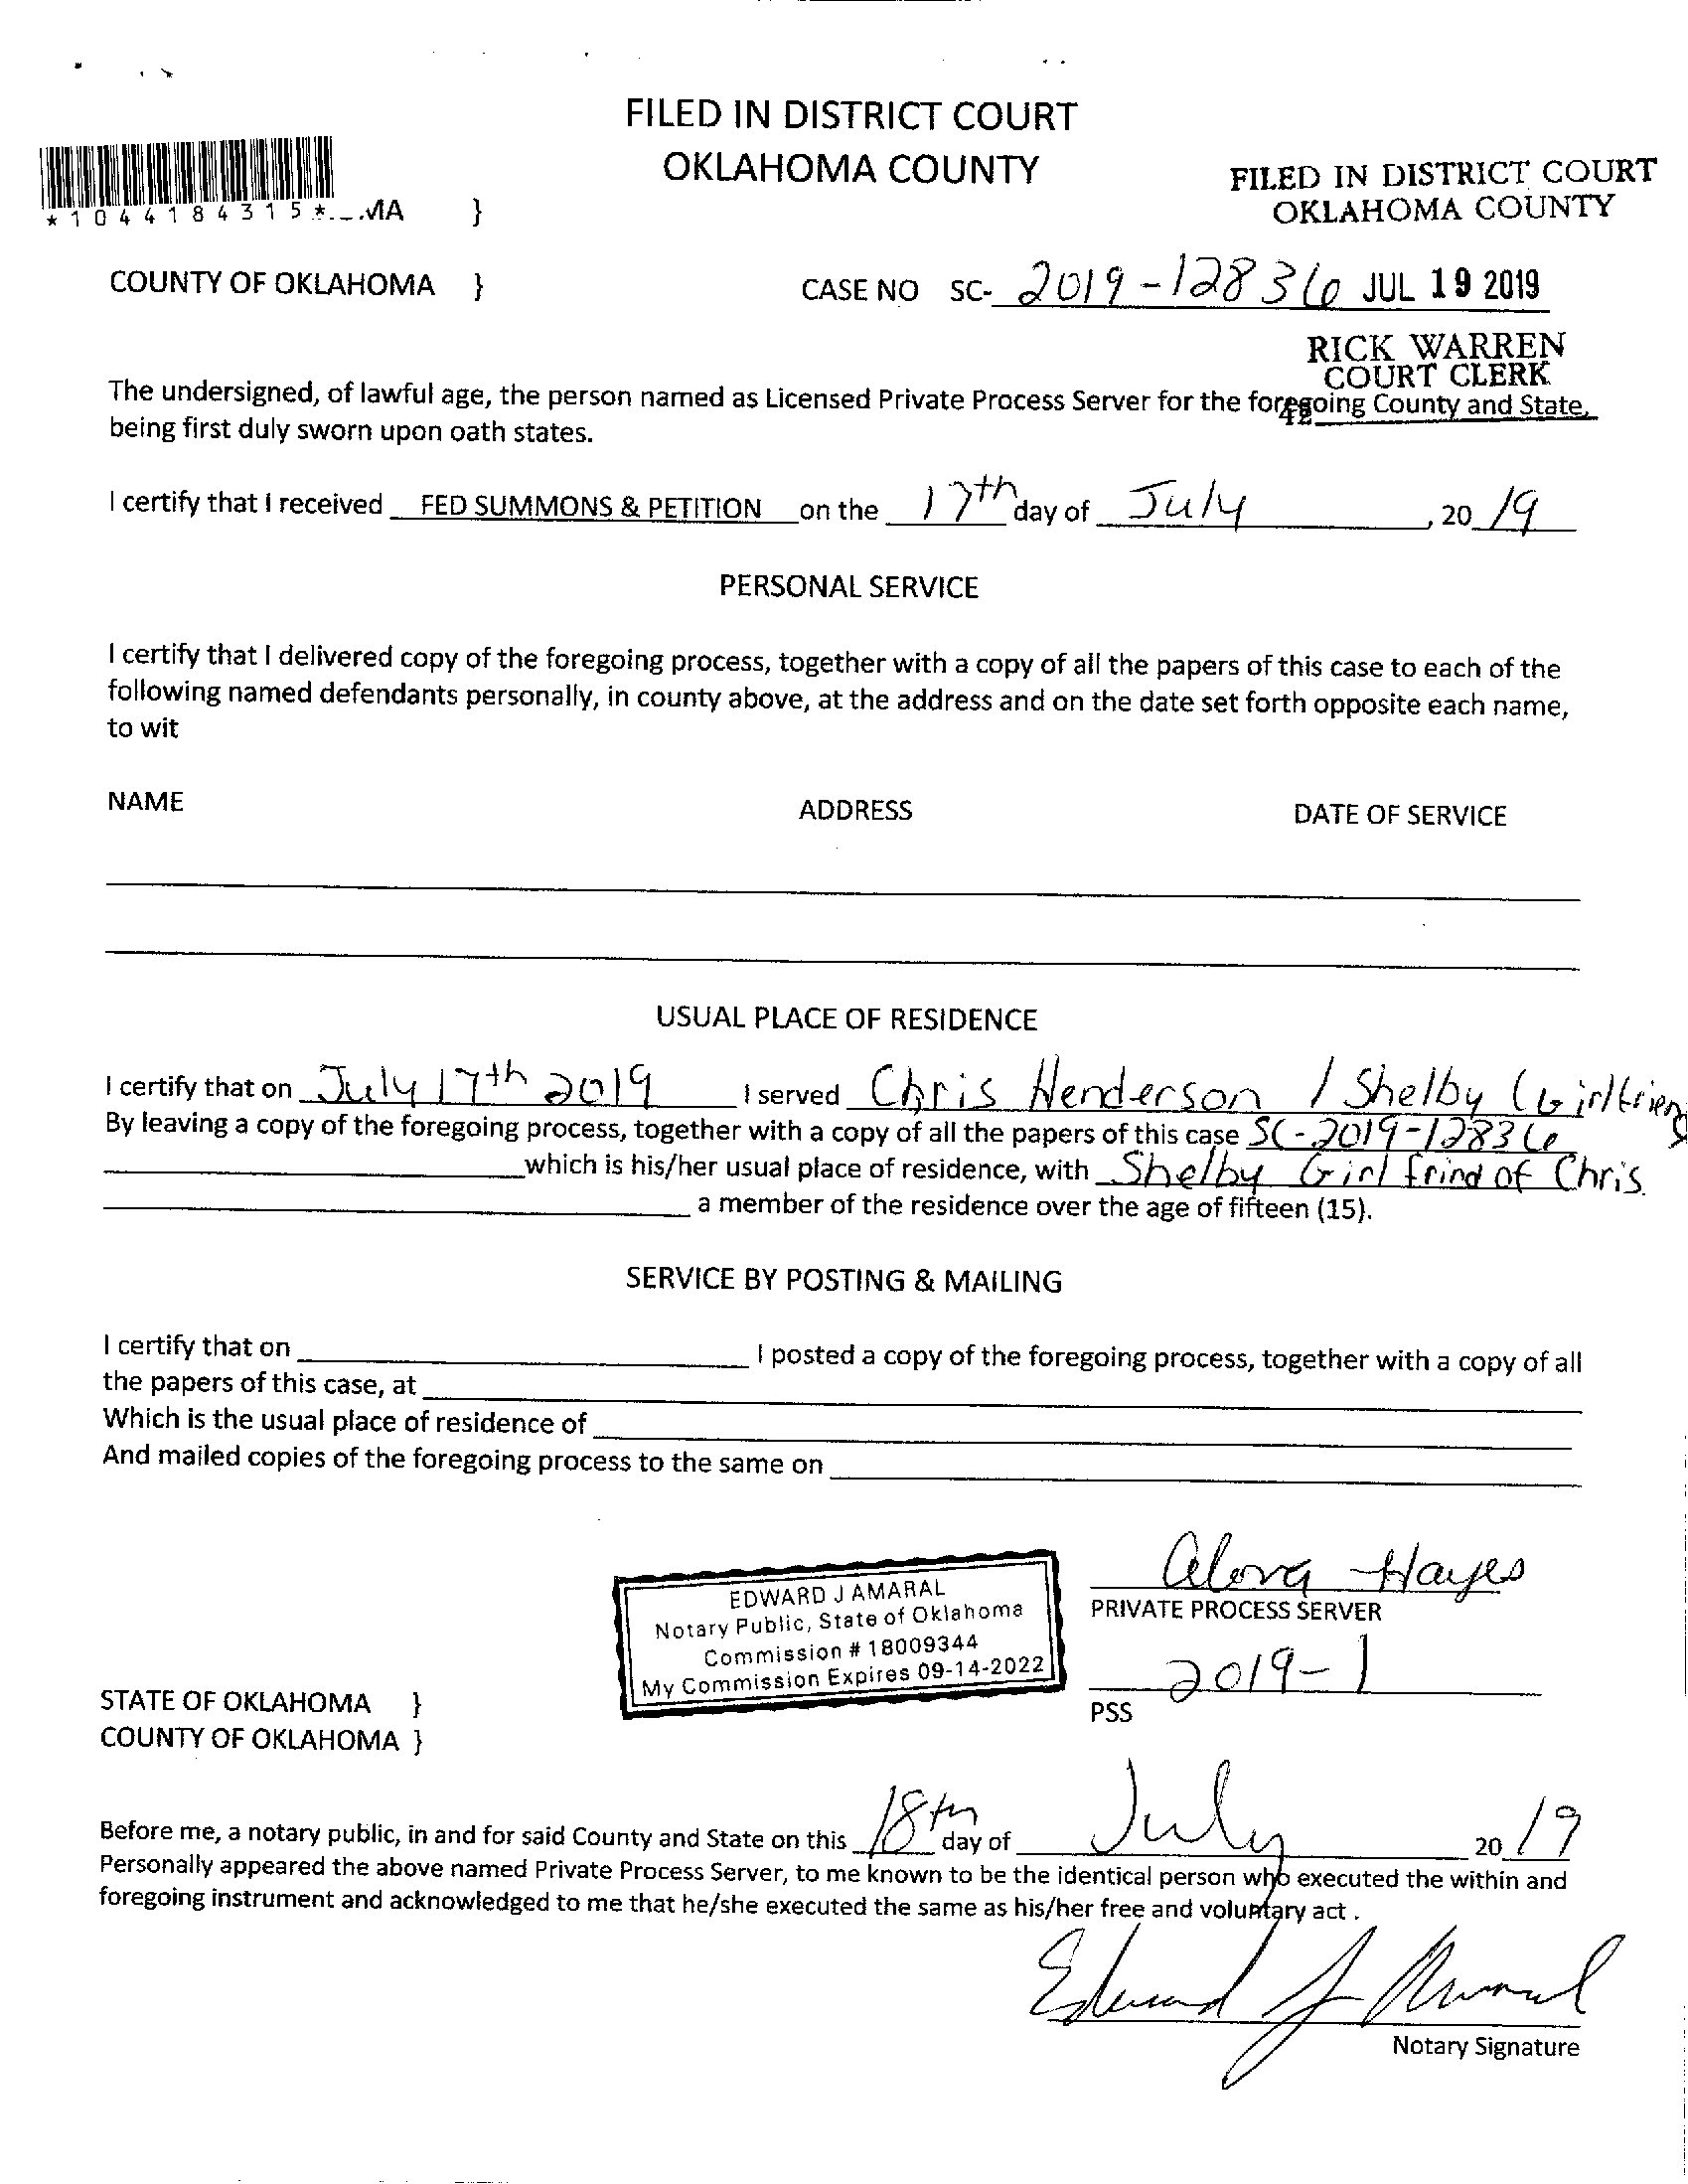 FILED IN DISTRICT COURT
OKLAHOMA COUNTY
FILED IN DISTRICT COURT
OKLAHOMA COUNTY
*1044184315* MA }
COUNTY OF OKLAHOMA } CASE NO SC- 2019-12836 JUL 19 2019
RICK WARREN
COURT CLERK
The undersigned, of lawful age, the person named as Licensed Private Process Server for the foregoing County and State,
42
being first duly sworn upon oath states.
I certify that I received FED SUMMONS & PETITION on the 17th day of July, 20 19
PERSONAL SERVICE
I certify that I delivered copy of the foregoing process, together with a copy of all the papers of this case to each of the
following named defendants personally, in county above, at the address and on the date set forth opposite each name,
to wit
NAME ADDRESS DATE OF SERVICE
USUAL PLACE OF RESIDENCE
I certify that on July 17th 2019 I served Chris Henderson / Shelby (Girlfriend
By leaving a copy of the foregoing process, together with a copy of all the papers of this case SC-2019-12836
which is his/her usual place of residence, with Shelby Girl frind of Chris
a member of the residence over the age of fifteen (15).
SERVICE BY POSTING & MAILING
I certify that on I posted a copy of the foregoing process, together with a copy of all
the papers of this case, at
Which is the usual place of residence of
And mailed copies of the foregoing process to the same on
Hayes
PRIVATE PROCESS SERVER
EDWARD J AMARAL
Notary Public, State of Oklahoma
Commission # 18009344
My Commission Expires 09-14-2022
2019-1
PSS
STATE OF OKLAHOMA }
COUNTY OF OKLAHOMA }
Before me, a notary public, in and for said County and State on this 18th day of July 20 19
Personally appeared the above named Private Process Server, to me known to be the identical person who executed the within and
foregoing instrument and acknowledged to me that he/she executed the same as his/her free and voluntary act .
Edward J Amaral
Notary Signature